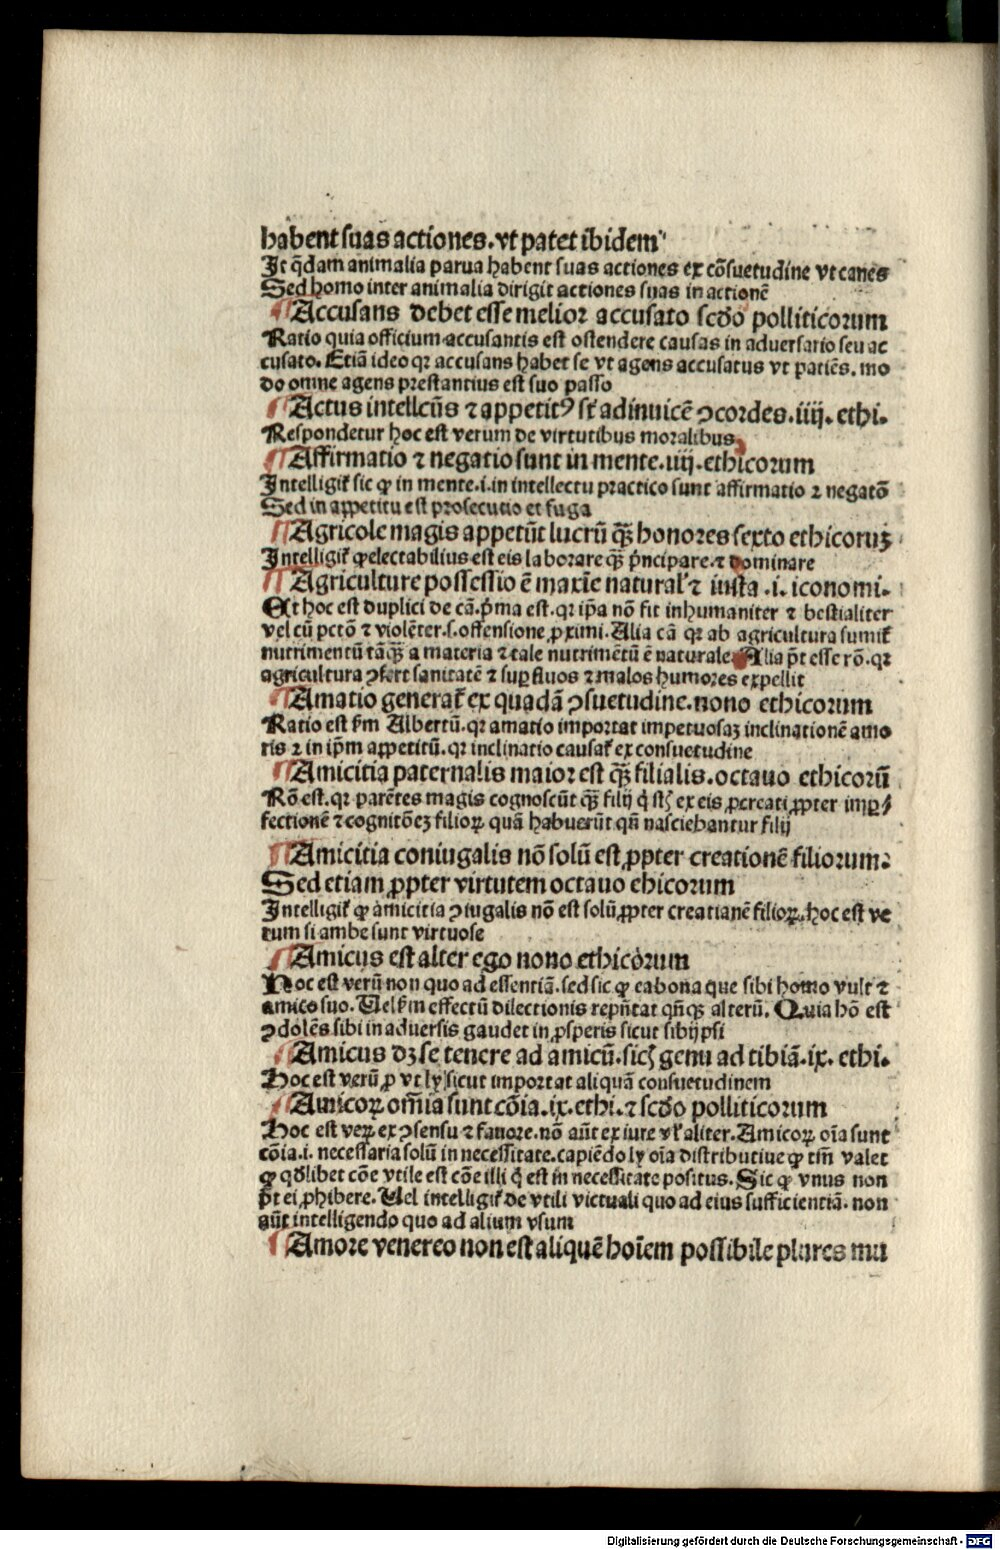 habent suas actiones. vt patet ibidem
It q̃dam animalia parua habent suas actiones ex cõsuetudine vt canes
Sed homo inter animalia dirigit actiones suas in actionẽ
¶ Accusans debet esse melior accusato scďo polliticorum
Ratio quia officium accusantis est ostendere causas in aduersario seu ac
cusato. Etiã ideo qꝛ accusans habet se vt agens accusatus vt patiẽs. mo
do omne agens prestantius est suo passo
¶ Actus intellcũs ⁊ appetitꝰ st̃ adinuicẽ ꝯcordes. iiij. ethi.
Respondetur hoc est verum de virtutibus moralibus
¶ Affirmatio ⁊ negatio sunt in mente. iiij. ethicorum
Intelligit̃ sic ꝙ in mente. i. in intellectu practico sunt affirmatio ⁊ negatõ
Sed in appetitu est prosecutio et fuga
¶ Agricole magis appetũt lucrũ q̃ꝫ honores sexto ethicoruꝫ
Intelligit̃ ꝙ electabilius est eis laborare q̃ꝫ p̃ncipare. ⁊ dominare
¶ Agriculture possessio ẽ maxĩe natural̃ ⁊ iusta . i. iconomi.
Et hoc est duplici de cã. p̃ma est. qꝛ ip̃a nõ fit inhumaniter ⁊ bestialiter
vel cũ pctõ ⁊ violẽter. s. offensione ꝓximi. Alia cã qꝛ ab agricultura sumit̃
nutrimentũ tãq̃ꝫ a materia ⁊ tale nutrimẽtũ ẽ naturale Alia p̃t esse rõ. qꝛ
agricultura ꝯfert sanitatẽ ⁊ suꝑfluos ⁊ malos humores expellit
¶ Amatio generat̃ ex quadã ꝯsuetudine. nono ethicorum
Ratio est ẜm Albertũ. qꝛ amatio importat impetuosaꝫ inclinationẽ amo
ris ⁊ in ip̃m appetitũ. qꝛ inclinatio causat̃ ex consuetudine
¶ Amicitia paternalis maior est q̃ꝫ filialis. octauo ethicorũ
Rõ est. qꝛ parẽtes magis cognoscũt q̃ꝫ filij q̃ st̃ ex eis ꝓcreati ꝓpter imꝑ⸗
fectionẽ ⁊ cognitõeꝫ filioꝝ quã habuerũt qñ nasciebantur filij
¶ Amicitia coniugalis nõ solũ est ꝓpter creationẽ filiorum.
Sed etiam ꝓpter virtutem octauo ehicorum
Intelligit̃ ꝙ amicitia ꝯiugalis nõ est solũ ꝓpter creatianẽ filioꝝ. hoc est ve
rum si ambe sunt virtuose
¶ Amicus est alter ego nono ethicorum
Hoc est verũ non quo ad essentiã. sed sic ꝙ ea bona que sibi homo vult ⁊
amico suo. Uel ẜm effectũ dilectionis repñtat qñqꝫ alterũ. Quia hõ est
ꝯdolẽs sibi in aduersis gaudet in ꝓsperis sicut sibijpsi
¶ Amicus dꝫ se tenere ad amicũ. sicꝫ genu ad tibiã. ix. ethi.
Hoc est verũ ꝓ vt ly sicut importat aliquã consuetudinem
¶ Amicoꝝ om̃ia sunt cõia. ix. ethi. ⁊ scďo polliticorum
Hoc est veꝝ ex ꝯsensu ⁊ fauore. nõ aũt ex iure vt̃ aliter. Amicoꝝ oĩa sunt
cõia. i. necessaria solũ in necessitate. capiẽdo ly oĩa distributiue ꝙ tm̃ valet
ꝙ qďlibet cõe vtile est cõe illi q̃ est in necessitate positus. Sic ꝙ vnus non
p̃t ei ꝓhibere. Uel intelligit̃ de vtili victuali quo ad eius sufficientiã. non
aũt intelligendo quo ad alium vsum
¶ Amore venereo non est aliquẽ hoĩem possibile plures mu
Digitalisierung gefördert durch die Deutsche Forschungsgemeinschaft - DFG